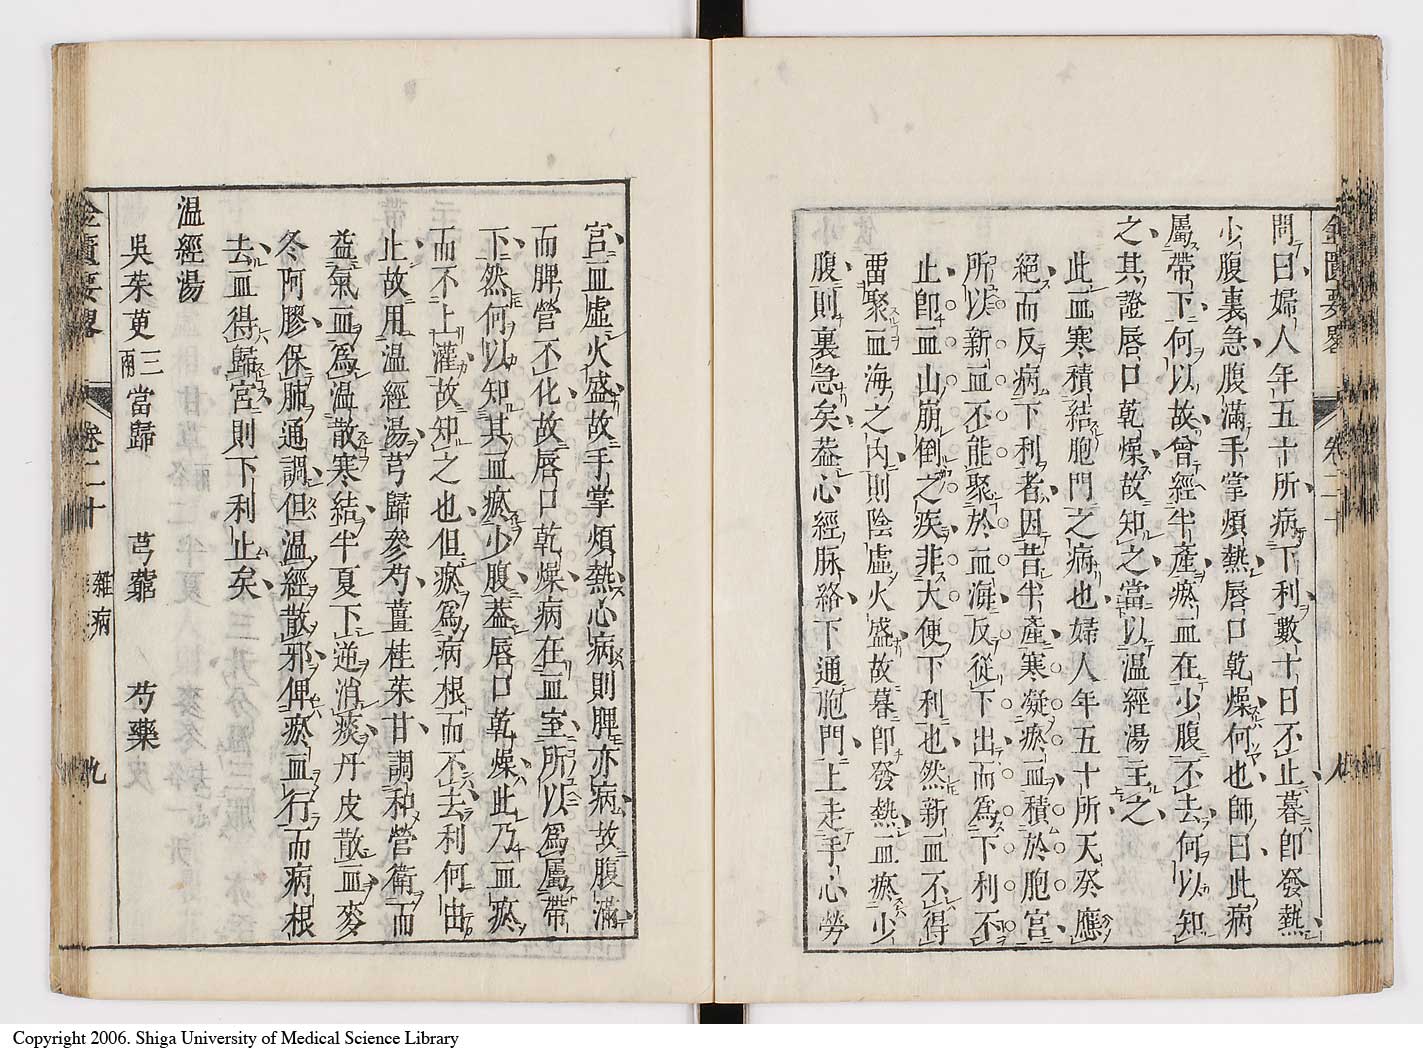 金匱要畧 卷二十
問曰婦人年五十所病下利數十日不止暮卽發熱
少腹裏急腹滿手掌煩熱唇口乾燥何也師曰此病
屬帶下何以故曾經半產瘀血在少腹不去何以知
之其證唇口乾燥故知之當以温經湯主之
此血寒積結胞門之病也婦人年五十所天癸應
絕而反病下利者因昔半產寒凝瘀血積於胞宮
所以新血不能聚於血海反從下出而為下利不
止卽血山崩倒之疾非大便下利也然新血不得
畱聚血海之內則陰虛火盛故暮卽發熱血瘀少
腹則裏急矣葢心經脉絡下通胞門上走手心勞
宮血虛火盛故手掌煩熱心病則脾亦病故腹滿
而脾營不化故唇口乾燥病在血室所以為屬帶
下然何以知其血瘀少腹葢唇口乾燥此乃血瘀
而不上灌故知之也但瘀為病根而不去利何由
止故用温經湯芎歸參芍薑桂茱甘調和營衛而
益氣血為温散寒結半夏下逆消痰丹皮散血麥
冬阿膠保肺通調但温經散邪俾瘀血行而病根
去血得歸宮則下利止矣
温經湯
吳茱萸三兩 當歸 芎藭 芍藥
金匱要畧 卷二十 雜病 九
Copyright 2006. Shiga University of Medical Science Library